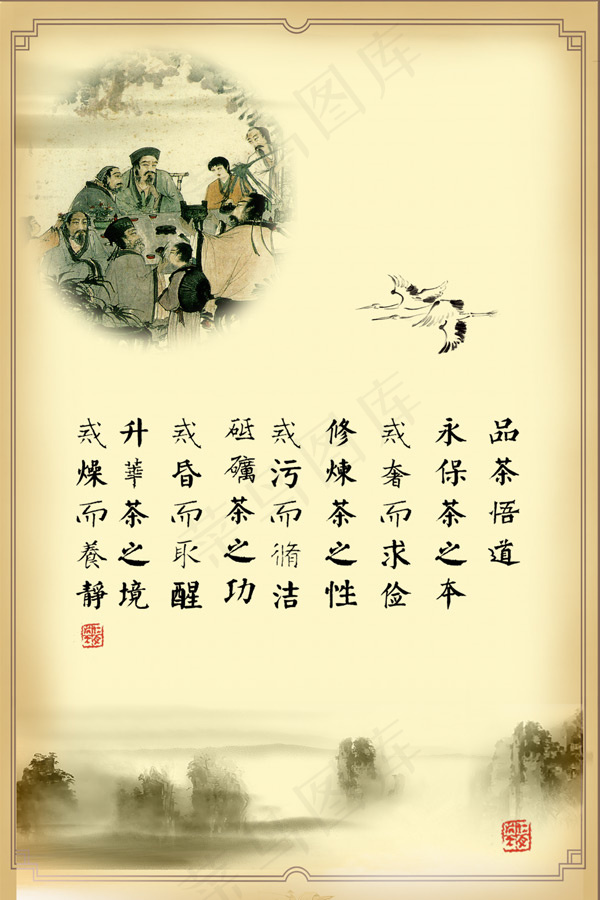 品茶悟道
永保茶之本
戒奢而求俭
修煉茶之性
戒污而脩洁
砥礪茶之功
戒昏而取醒
升華茶之境
戒燥而養靜
菜鸟图库